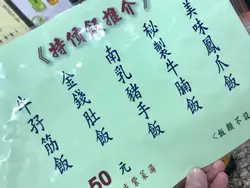 《特價飯推介》
美味鳳爪飯
秘製牛腩飯
南乳豬手飯
金錢肚飯
孖筋飯
50元
紫菜湯
飯類不設